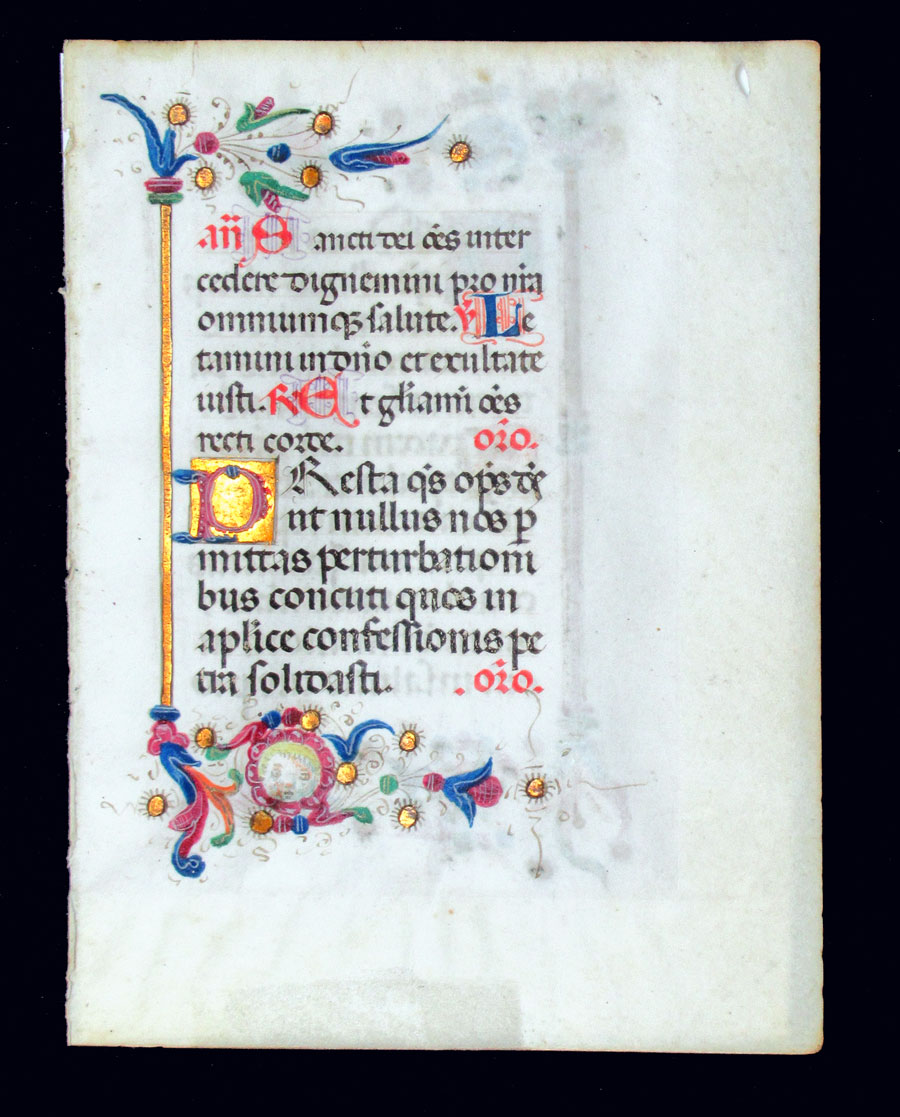 añ Sancti dei oẽs inter
cedere dignemini pro nr̃a
omniumqꝫ salute. ℣ Le
tamini in dño et exultate
iusti. ℞ Et gl̃iamĩ oẽs
recti corde. or̃o.
PResta q̃s op̃s dẽ
ut nullus nos ꝑ
mittas perturbationi
bus concuti quos in
aplice confessionis pe
tra solidasti. .or̃o.